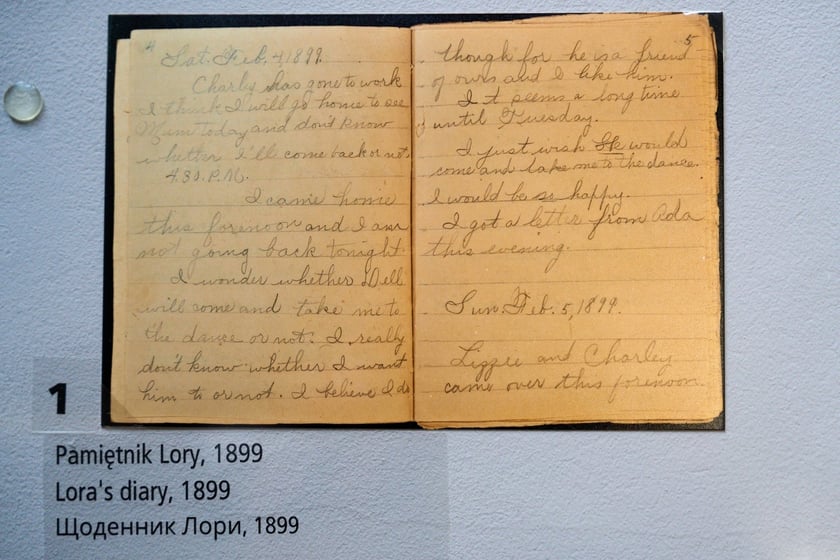 4
Sat. Feb. 4, 1899.
Charley has gone to work
I think I will go home to see
Mum today and don't know
whether I'll come back or not.
4.30. P.M.
I came home
this forenoon and I am
not going back tonight.
I wonder whether Dell
will come and take me to
the dance or not. I really
don't know whether I want
him to or not. I believe I do
5
though for he is a friend
of ours and I like him.
It seems a long time
until Tuesday.
I just wish would
come and take me to the dance.
I would be so happy.
I got a letter from Ada
this evening.
Sun. Feb. 5, 1899.
Lizzie and Charley
came over this forenoon.
1
Pamiętnik Lory, 1899
Lora's diary, 1899
Щоденник Лори, 1899